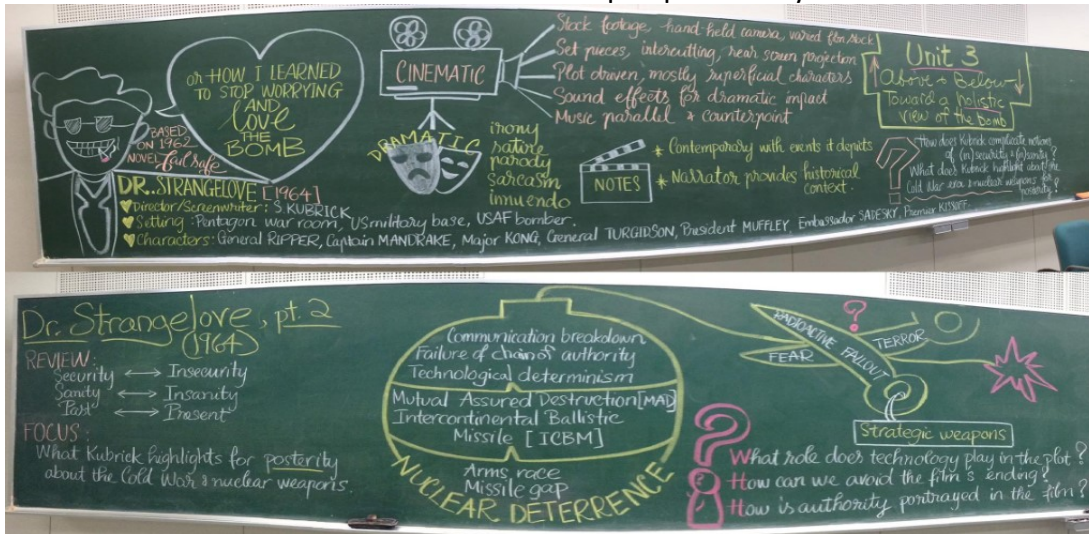 or HOW I LEARNED
TO STOP WORRYING
AND
love
THE
BOMB
BASED
ON 1962
NOVEL fail safe
DR. STRANGELOVE [1964]
Director/Screenwriter: S. KUBRICK
Setting: Pentagon war room, US military base, USAF bomber.
Characters: General RIPPER, Captain MANDRAKE, Major KONG, General TURGIDSON, President MUFFLEY, Embassador SADESKY, Premier KISSOFF.
CINEMATIC
Stock footage, hand-held camera, varied film stock
Set pieces, intercutting, rear screen projection
Plot driven, mostly superficial characters
Sound effects for dramatic impact
Music parallel & counterpoint
DRAMATIC
irony
satire
parody
sarcasm
innuendo
NOTES
* Contemporary with events it depicts
* Narrator provides historical
context.
Unit 3
Above & Below
Toward a holistic
view of the Bomb
How does Kubrick complicate notions
of (in)security & (in)sanity?
What does Kubrick highlight about the
Cold War era & nuclear weapons for
posterity?
Dr. Strangelove, pt. 2
(1964)
REVIEW:
Security ↔ Insecurity
Sanity ↔ Insanity
Past ↔ Present
FOCUS:
What Kubrick highlights for posterity
about the Cold War & nuclear weapons.
Communication breakdown
Failure of chain of authority
Technological determinism
Mutual Assured Destruction [MAD]
Intercontinental Ballistic
Missile [ICBM]
Arms race
Missile gap
NUCLEAR DETERRENCE
RADIOACTIVE FALLOUT
FEAR
TERROR
?
Strategic weapons
What role does technology play in the plot?
How can we avoid the film's ending?
How is authority portrayed in the film?